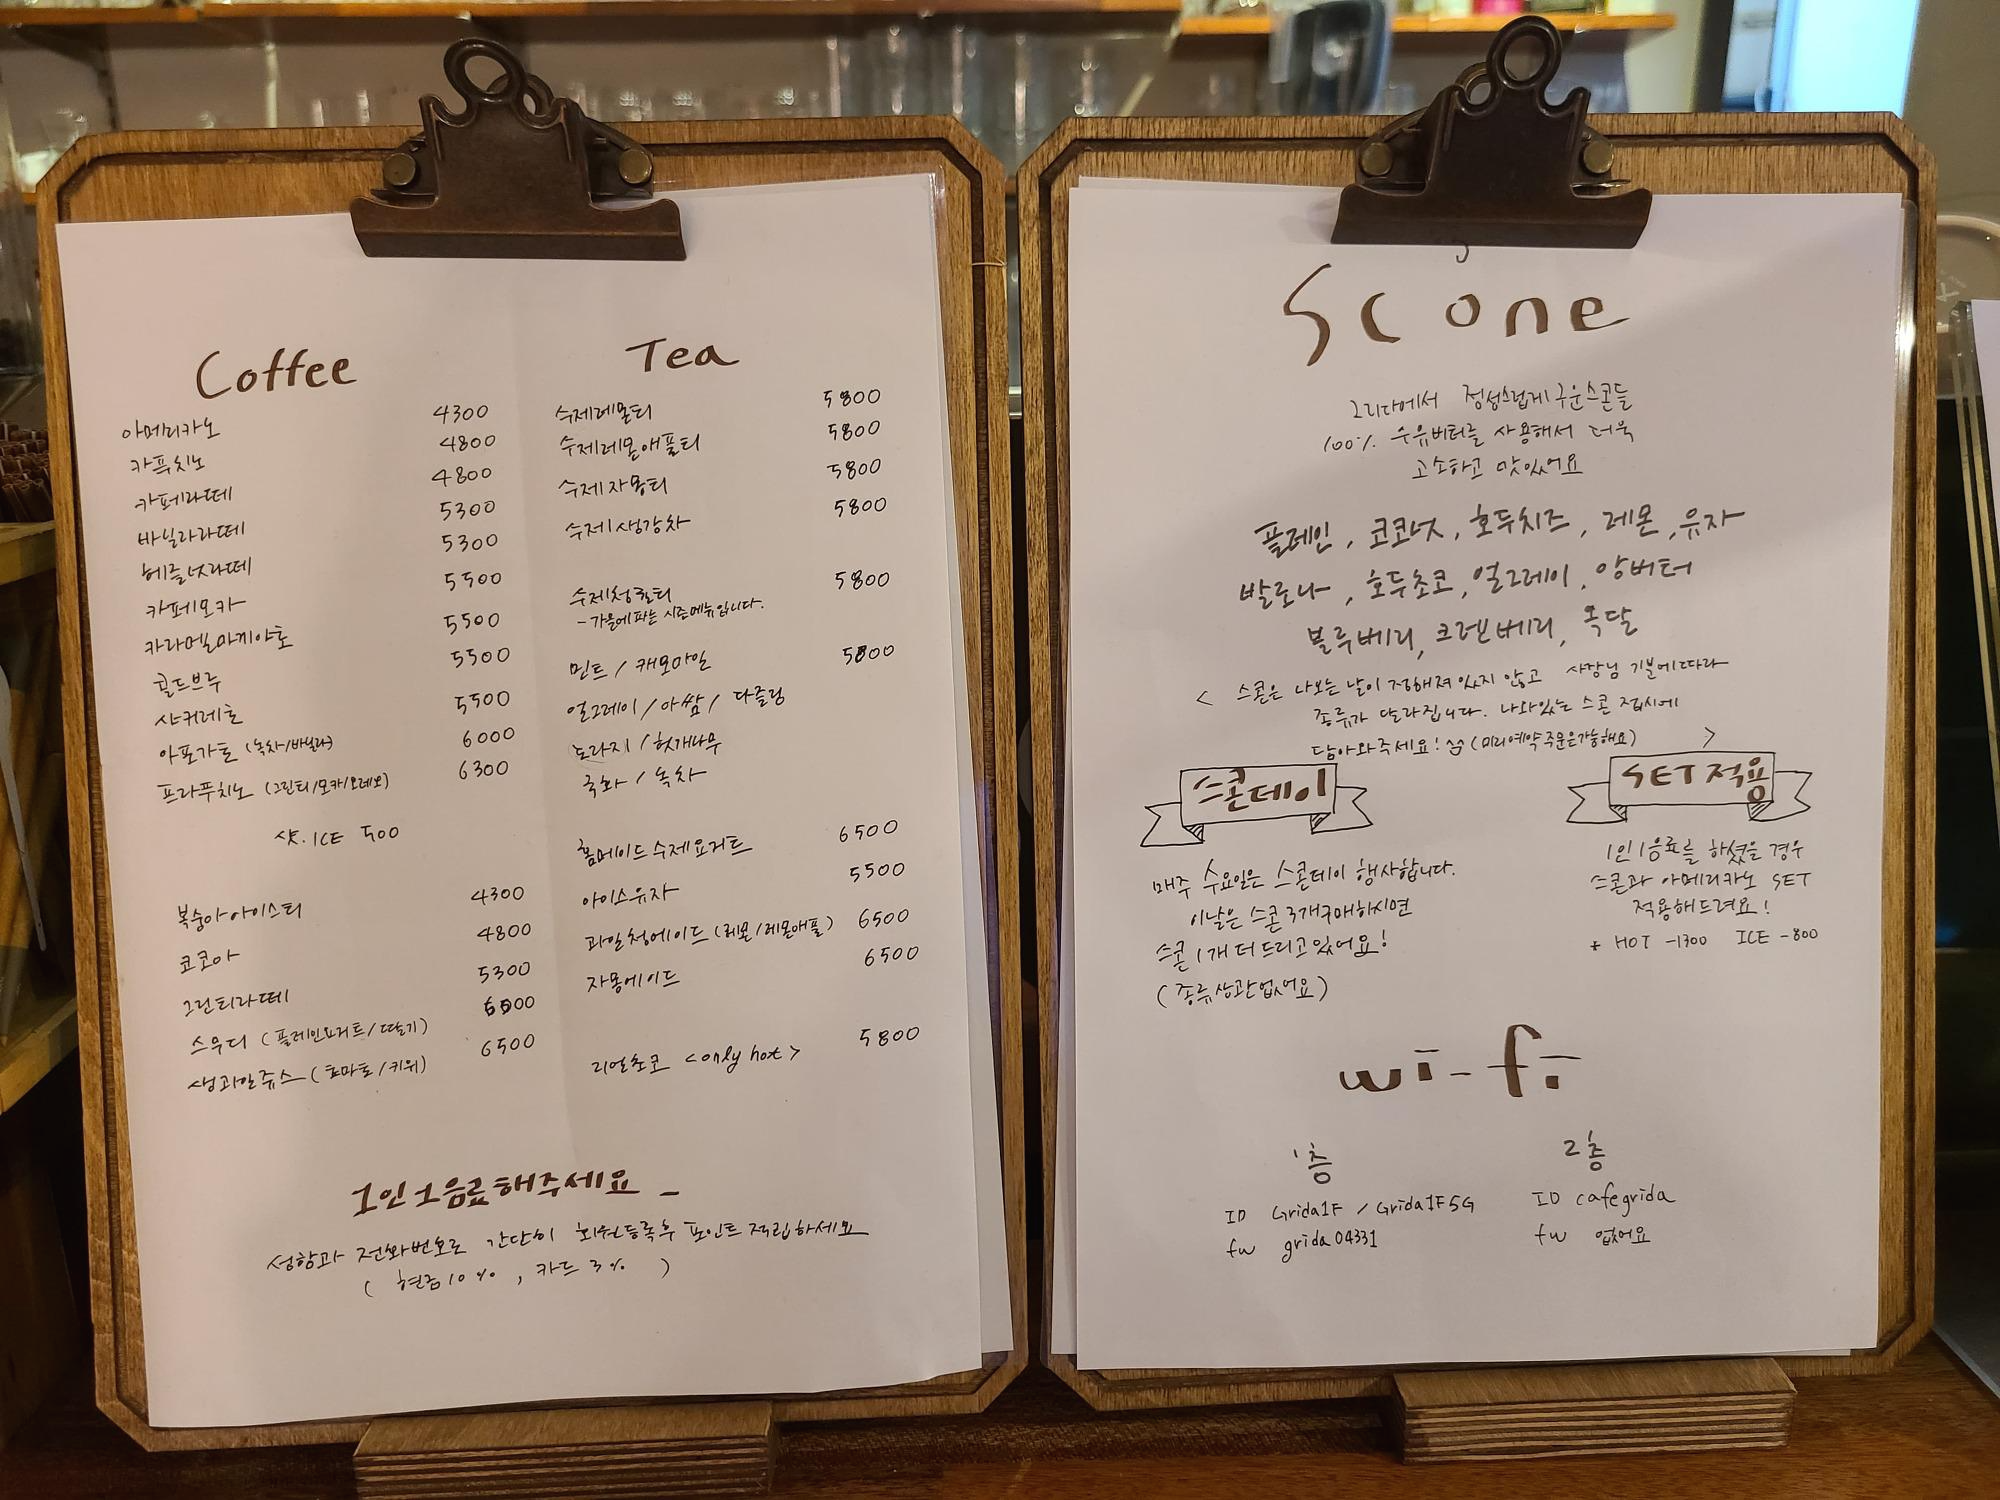 Coffee
아메리카노 4300
카푸치노 4800
카페라떼 4800
바닐라라떼 5300
헤즐넛라떼 5300
카페모카 5500
카라멜마끼아또 5500
콜드브루 5500
샤커레또 5500
아포가토 (녹차/바닐라) 6000
프라푸치노 (그린티/모카/오레오) 6300
샷. ICE 500
복숭아아이스티 4300
코코아 4800
그린티라떼 5300
스무디 (플레인요거트/딸기)
생과일쥬스 (토마토/키위) 6500
Tea
수제레몬티 5800
수제레몬애플티 5800
수제자몽티 5800
수제생강차 5800
수제청귤티 5800
- 가을에파는 시즌메뉴입니다.
민트 / 캐모마일 5800
얼그레이 / 아쌈 / 다즐링
도라지 / 헛개나무
국화 / 녹차
홈메이드수제요거트 6500
아이스유자 5500
과일청에이드 (레몬/레몬애플) 6500
자몽에이드 6500
리얼초코 <only hot> 5800
1인1음료해주세요
성함과 전화번호로 간단히 회원등록후 포인트 적립하세요
( 현금10% , 카드 3% )
Scone
그리다에서 정성스럽게구운스콘들
100% 우유버터를 사용해서 더욱
고소하고 맛있어요
플레인, 코코넛, 호두치즈, 레몬, 유자
발로나, 호두초코, 얼그레이, 앙버터
블루베리, 크렌베리, 옥달
< 스콘은 나오는 날이 정해져있지 않고 사장님 기분에따라
종류가 달라집니다. 나와있는 스콘 접시에
담아와주세요! ^^ (미리예약주문은가능해요) >
스콘데이
매주 수요일은 스콘데이 행사합니다.
이날은 스콘 3개구매하시면
스콘 1개 더 드리고있어요!
(종류상관없어요)
SET 적용
1인 1음료를 하셨을 경우
스콘과 아메리카노 SET
적용해드려요!
* HOT -1300 ICE -800
wi-fi
1층
ID Grida1F / Grida1F5G
fw grida04331
2층
ID cafegrida
fw 없어요